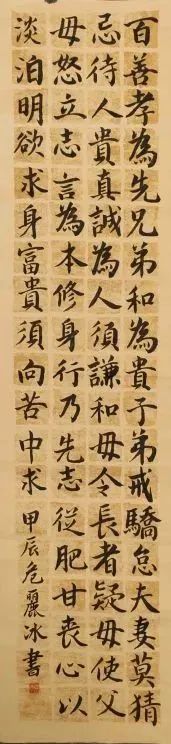 百善孝為先兄弟和為貴子弟戒驕怠夫妻莫猜
忌待人貴真誠為人須謙和毋令長者疑毋使父
母怒立志言為本修身行乃先志從肥甘喪心以
淡泊明欲求身富貴須向苦中求
甲辰危麗冰書